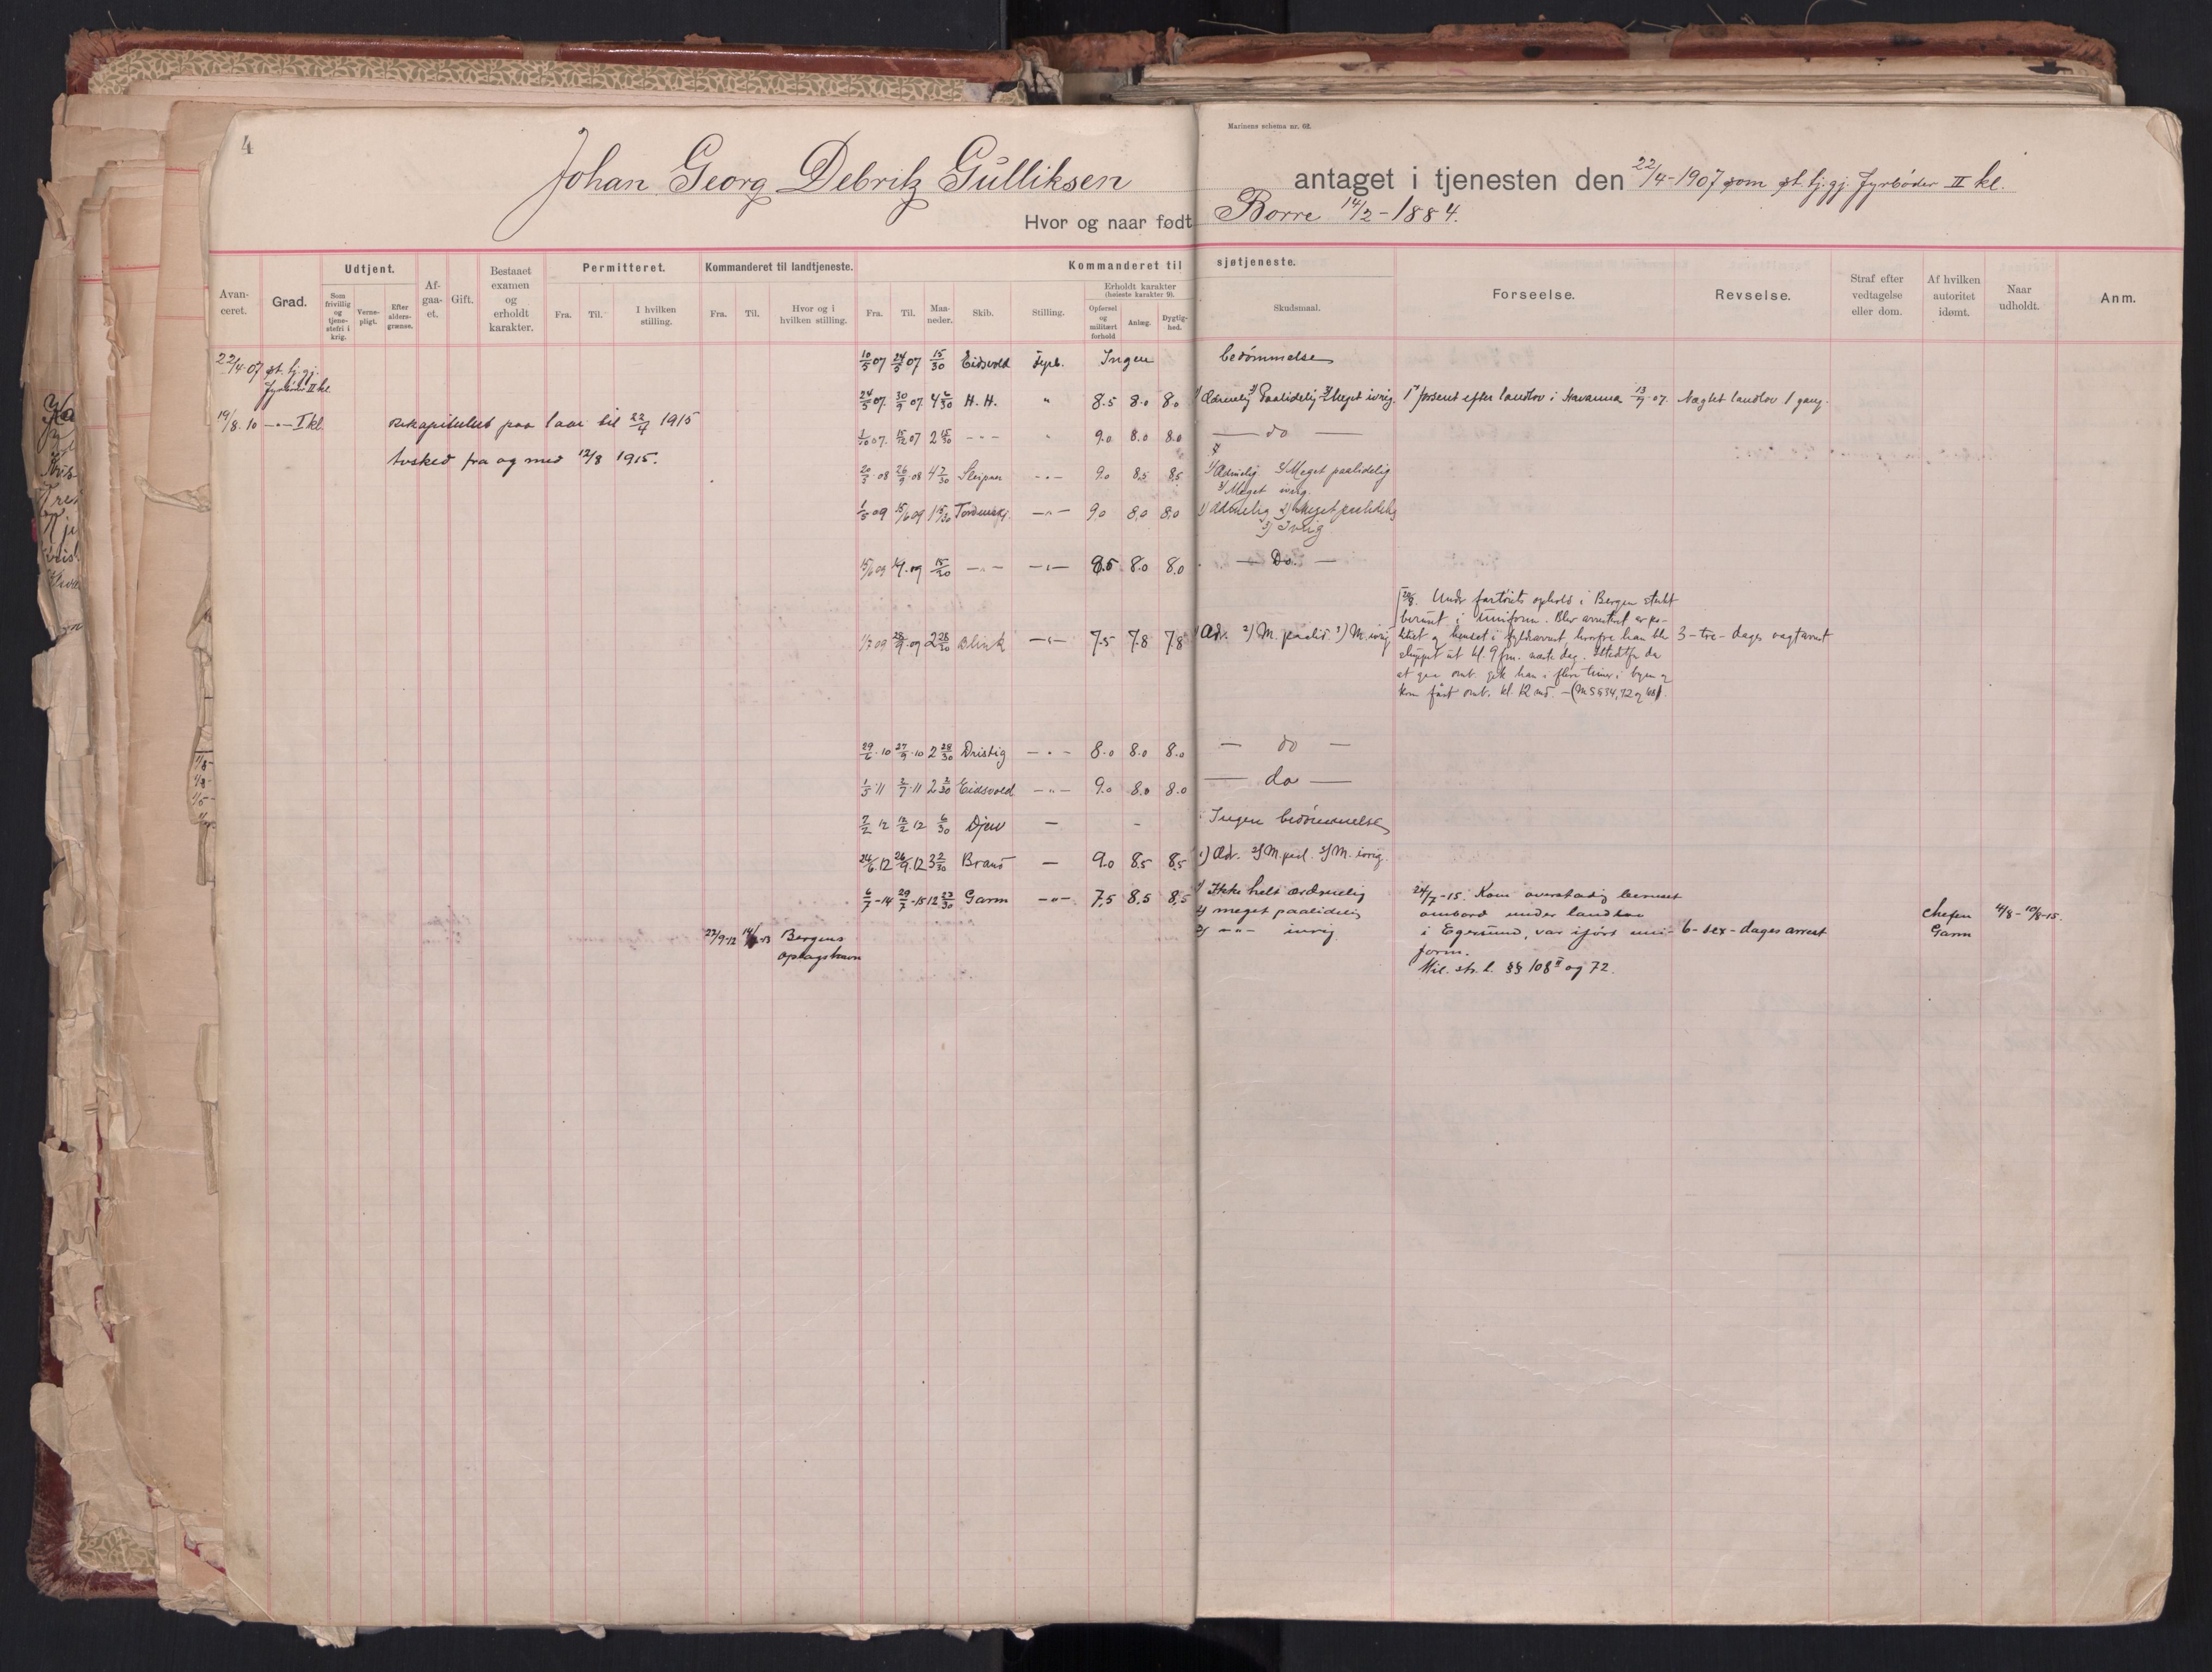 4
Marinens schema nr. 62.
Johan Georg Debritz Gulliksen antaget i tjenesten den 22/4-1907 som st. tj. gj. Fyrbøder II kl.
Hvor og naar født Borre 14/2-1884.
Avanceret. Grad. Udtjent. Som frivillig og tjenestefri i krig. Vernepligt. Efter aldersgrænse. Afgaaet. Gift. Bestaaet examen og erholdt karakter. Permitteret. Fra. Til. I hvilken stilling. Kommanderet til landtjeneste. Fra. Til. Hvor og i hvilken stilling. Kommanderet til sjøtjeneste. Fra. Til. Maaneder. Skib. Stilling. Erholdt karakter (høieste karakter 9). Opførsel og militært forhold Anlæg. Dygtighed. Skudsmaal. Forseelse. Revselse. Straf efter vedtagelse eller dom. Af hvilken autoritet idømt. Naar udholdt. Anm.
22/4-07 st. tj. gj. Fyrbøder II kl.
19/8.10 —"— I kl.
Rekapituleret paa 1 aar til 22/4 1915
Avsked fra og med 12/8 1915.
10/5 07 24/5 07 15/30 Eidsvold Fyrb. Ingen bedømmelse
24/5 07. 30/9 07. 4 6/30 H. H. " 8.5 8.0 8.0 1) Ædruelig 2) Paalidelig 3) Meget ivrig. 1) forsent efter landlov i Havanna 13/9.07. Nægtet landlov 1 gang.
1/10 07. 15/12 07 2 15/30 -"- " 9.0 8.0 8.0 — do —
20/5.08 26/9.08 4 7/30 Sleipner -"- 9.0 8.5 8.5 1) Ædruelig 2) Meget paalidelig
3) Meget ivrig.
1/5 09 15/6 09 1 15/30 Tordenskj. —"— 9.0 8.0 8.0 1) Ædruelig 2) Meget paalidelig
3) Ivrig
15/6 09 1/7.09 15/30 —"— —"— 8.5 8.0 8.0 — Do. —
1/7 09 28/9.09 2 28/30 Blink —"— 7.5 7.8 7.8 1) Æd. 2) M. paalid. 3) M. ivrig
Under fartøiets ophold i Bergen sterkt
beruset i uniform. Blev arrestert av po-
litiet og hensat i fyldearrest hvorfra han ble
sluppet ut kl. 9 fm. næste dag. Istedetfor da
at gaa omb. gik han i flere timer i byen og
kom først omb. kl. 12 md. —(M S §34, 72 og 108).
3 - tre - dages vagtarrest
29/6.10 27/9.10 2 28/30 Dristig —"— 8.0 8.0 8.0 — do —
1/5.11 2/7.11 2 2/30 Eidsvold —"— 9.0 8.0 8.0 — do —
7/2 12 12/2 12 6/30 Djerv — - Ingen bedømmelse
24/6.12 26/9.12 3 2/30 Brand — 9.0 8.5 8.5 1) Æd. 2) M. pal. 3) M. ivrig.
6/7-14 29/7-15 12 23/30 Garm —"— 7,5 8,5 8,5 1) Ikke helt ædruelig
2) meget paalidelig
3) —"— ivrig.
24/7-15. Kom overstadig beruset
ombord under landlov
i Egersund, var iført uni-
form.
Mil. str. l. §§ 108 II og 72.
6 - sex - dages arrest
Chefen
Garm
4/8-10/8-15.
27/9-12 Bergens
oplagshavn